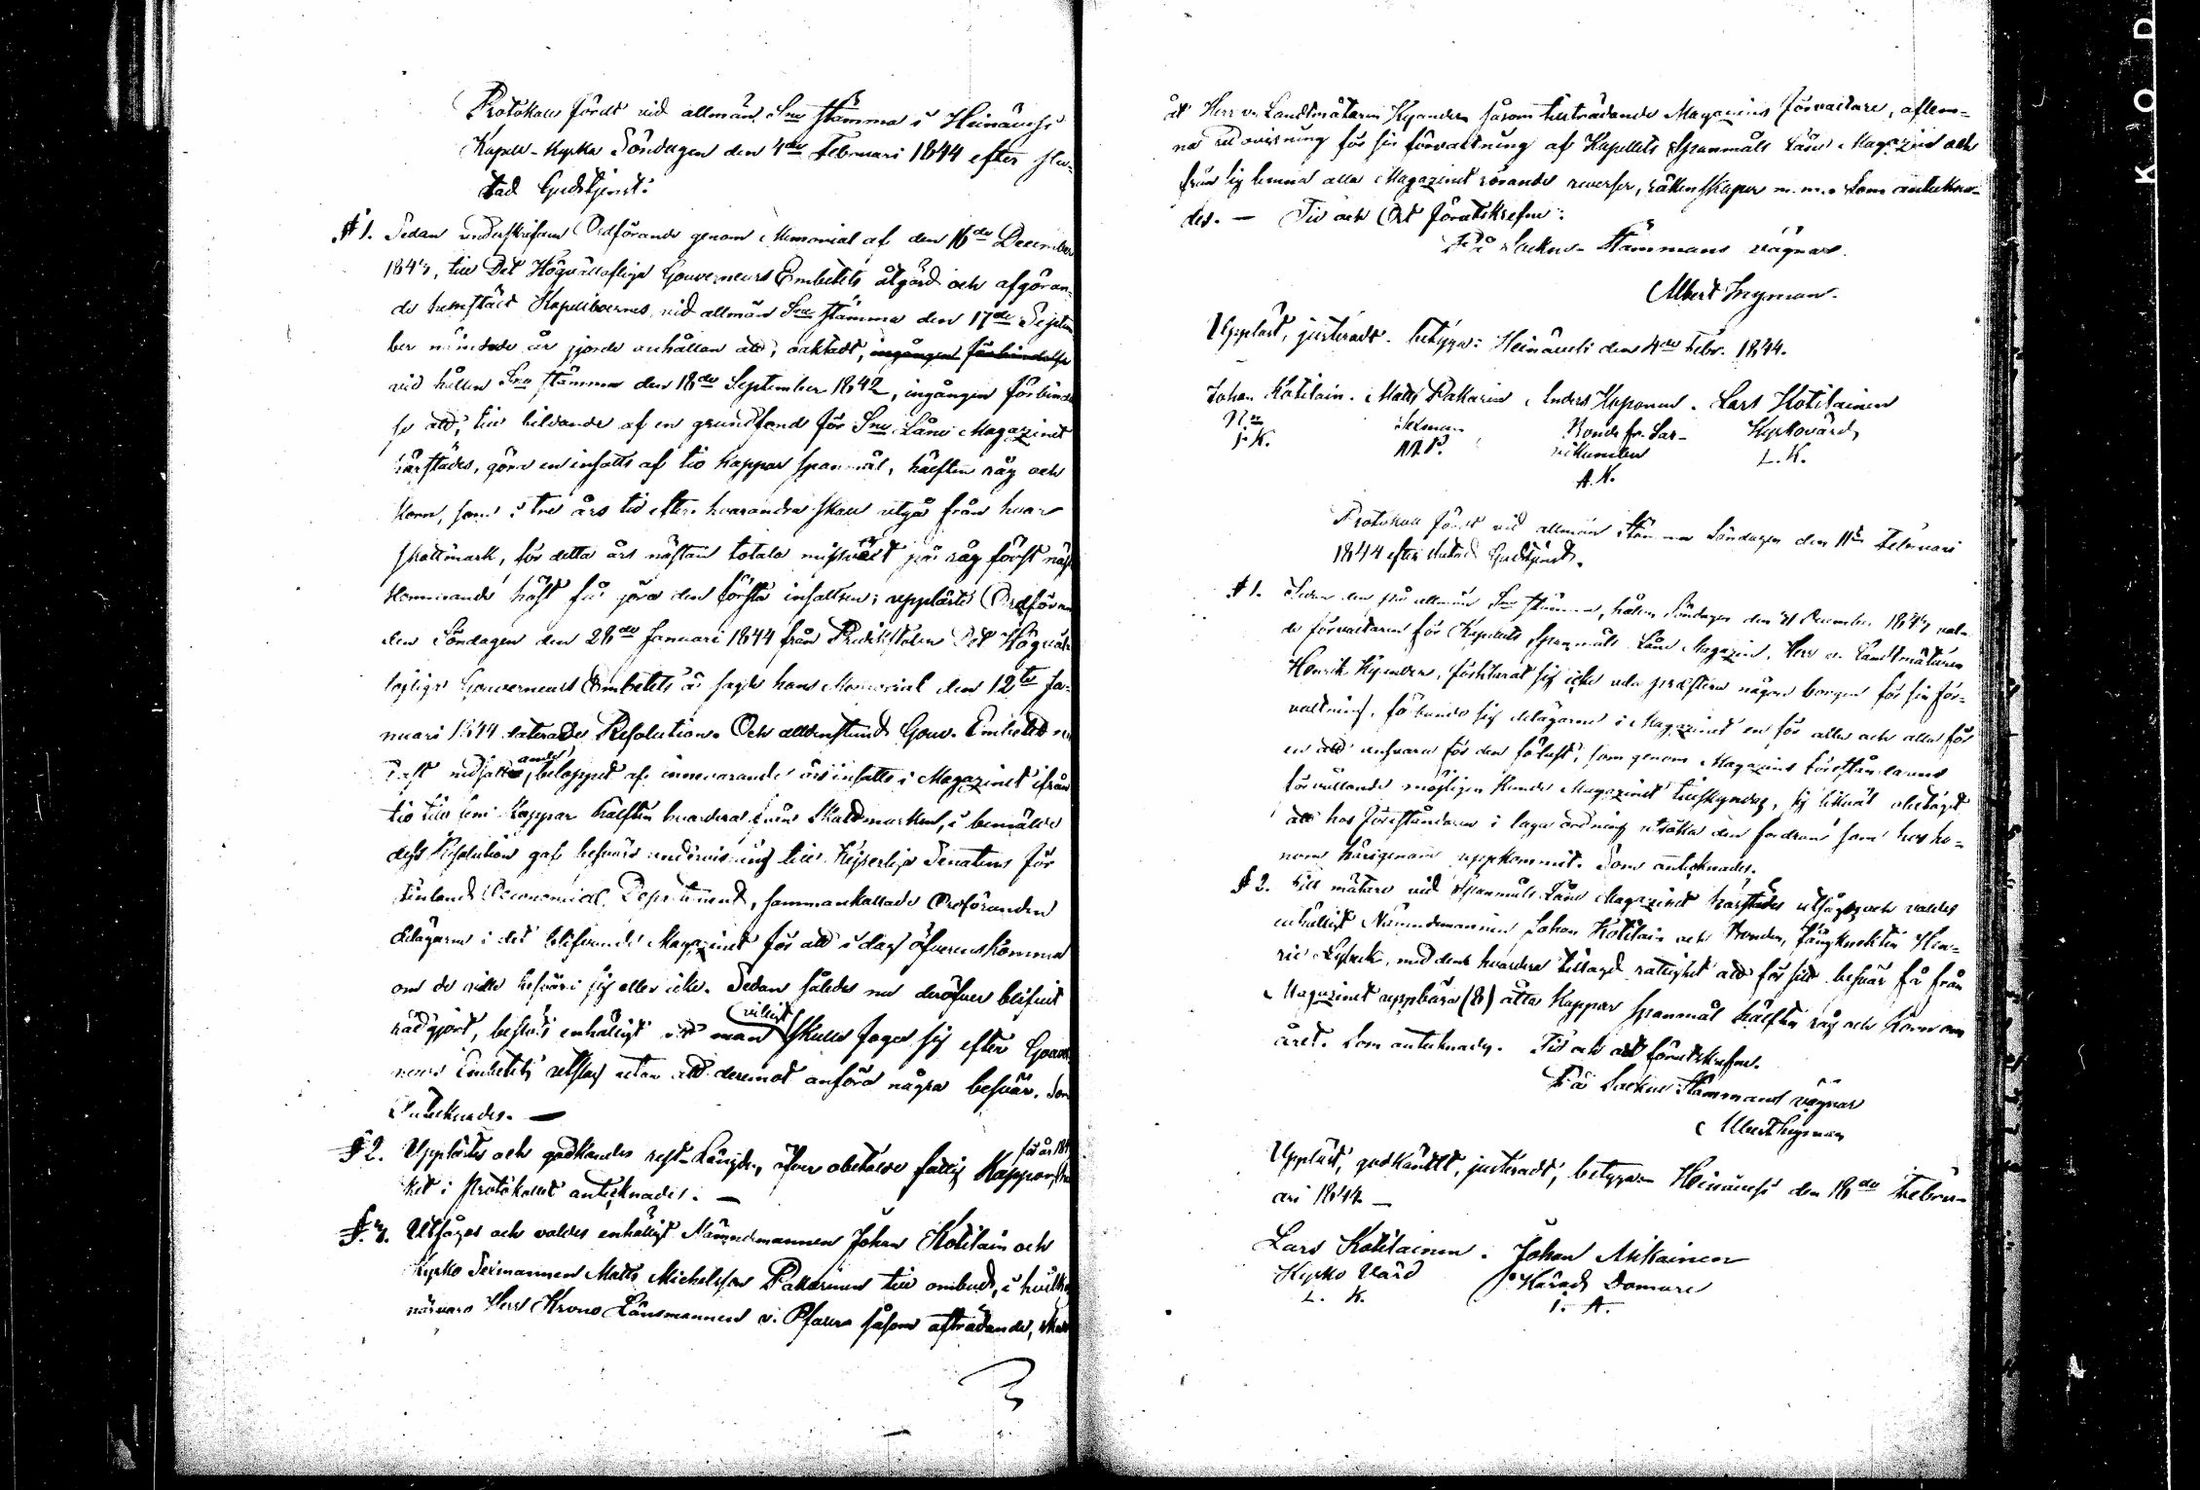 Protokoll fördt vid allmän Sne stämma i Heinävesi
Kapell-Kyrka Söndagen den 4de Februari 1844 efter slu-
tad Gudstjenst:
§ 1. Sedan underskrifven Ordförande genom Memorial af den 16de December
1843, till Det Högvällofliga Gouverneurs Embetets åtgärd och afgöran-
de hemstält Kapellboernes, vid allmän Sne stämma den 17de Septem
ber nämnde år gjorde anhållan att, oaktadt, ingången förbindelse
vid hållen Sne stämma den 18de September 1842, ingången förbindel
se att, till bildande af en grundfond för Sne Låne Magazinet
härstädes, göra en insatts af tio kappar spanmål, hälften råg och
korn, som i tre års tid efter hvarandra skall utgå från hvar
skattmark, för detta års nästan totala missväxt på råg först näst
kommande höst få göra den första insattsen; uppläste Ordföran
den Söndagen den 28de Januari 1844 från Predikstolen Det Högväl-
lofliga Gouverneurs Embetets å sagde hans Memorial den 12te Ja-
nuari 1844 laterade Resolution. Och alldenstund Gouv. Embetet
ande
nedsatt beloppet af innevarande års insatts i Magazinet ifrån
tio till fem Kappar hälften hvardera från Skattmarken, i bemälde
dess Resolution gaf besvärs undervisning till Kejserliga Senatens för
Finland Oeconomiae Departement, sammankallade Ordföranden
delägarne i det blifvande Magazinet för att i dag öfverenskomma
om de ville besvära sig eller icke. Sedan således nu deröfver blifvit
rådgjort, beslöts enhälligt att man villigt skulle foga sig efter Gouver
neurs Embetets utslag utan att deremot anföra några besvär. Som
Antecknades. —
§ 2. Upplästes och godkändes rest-Längden, öfver obetalde fattig Kappor, för år 184
ket i Protokollet antecknades. —
§. 3. Utsågos och valdes enhälligt Nämndemannen Johan Kotilain och
Kyrko Sexmannen Matts Michelsson Pakarinen till ombud, i hvilkas
närvaro Herr Krono Länsmannen v. Pfaler såsom afträdande, skall
åt Herr v. Landtmätaren Kyander såsom tillträdande Magazins förvaltare, aflem-
na redovisning för sin förvaltning af Kapellets Spanmåls Låne Magazin och
från sig lemna alla Magazinet rörande reverser, räkenskaper m. m. Som anteckna-
des. — Tid och Ort förutskrefne:
På Sockne-Stämmans vägnar.
Albert Ingman.
Uppläst, justeradt. betyga: Heinävesi den 4de Febr. 1844.
Johan Kotilain. Matts Pakarinen. Anders Koponen. Lars Kotilainen
Nn Sexman Bonde fr. Sar- Kyrkovärd
J. K. M. P. vikumbu L. K.
A. K.
Protokoll fördt vid allmän Stämma Söndagen den 11te Februari
1844 efter slutad Gudstjenst.
§ 1. Sedan den på allmän Sne stämma, hållen Söndagen den 31 December 1843 val-
de förvaltaren för Kapellets Spanmåls Låne Magazin, Herr v. Landtmätaren
Henrik Kyander, förklarat sig icke vela præstera någon borgen för sin för-
valtning, förbundo sig delägarne i Magazinet en för alla och alla för
en att ansvara för den förlust, som genom Magazins Föreståndarens
förvållande möjligen kunde Magazinet tillskyndas, sig likväl obetaget
att hos föreståndaren i laga ordning utsöka den fordran som hos ho-
nom härigenom uppkommit. Som antecknades.
§ 2. Till mätare vid Spanmåls Låne Magazinet härstädes utsågos och valdes
enhälligt Nämndemannen Johan Kotilain och Bonden, fångknekten Hen-
ric Lybeck, med dem hvardera tillagd rättighet att för sitt besvär få från
Magazinet uppbära (8) åtta Kappar spanmål hälften råg och korn om
året. Som antecknades. Tid och ort förutskrefne.
På Sockne Stämmans vägnar
Albert Ingman
Uppläst, godkändt, justeradt, betyga Heinävesi den 18de Februa-
ari 1844 —
Lars Kotilainen. Johan Asikainen
Kyrko Värd Härads Domare
L. K. J. A.